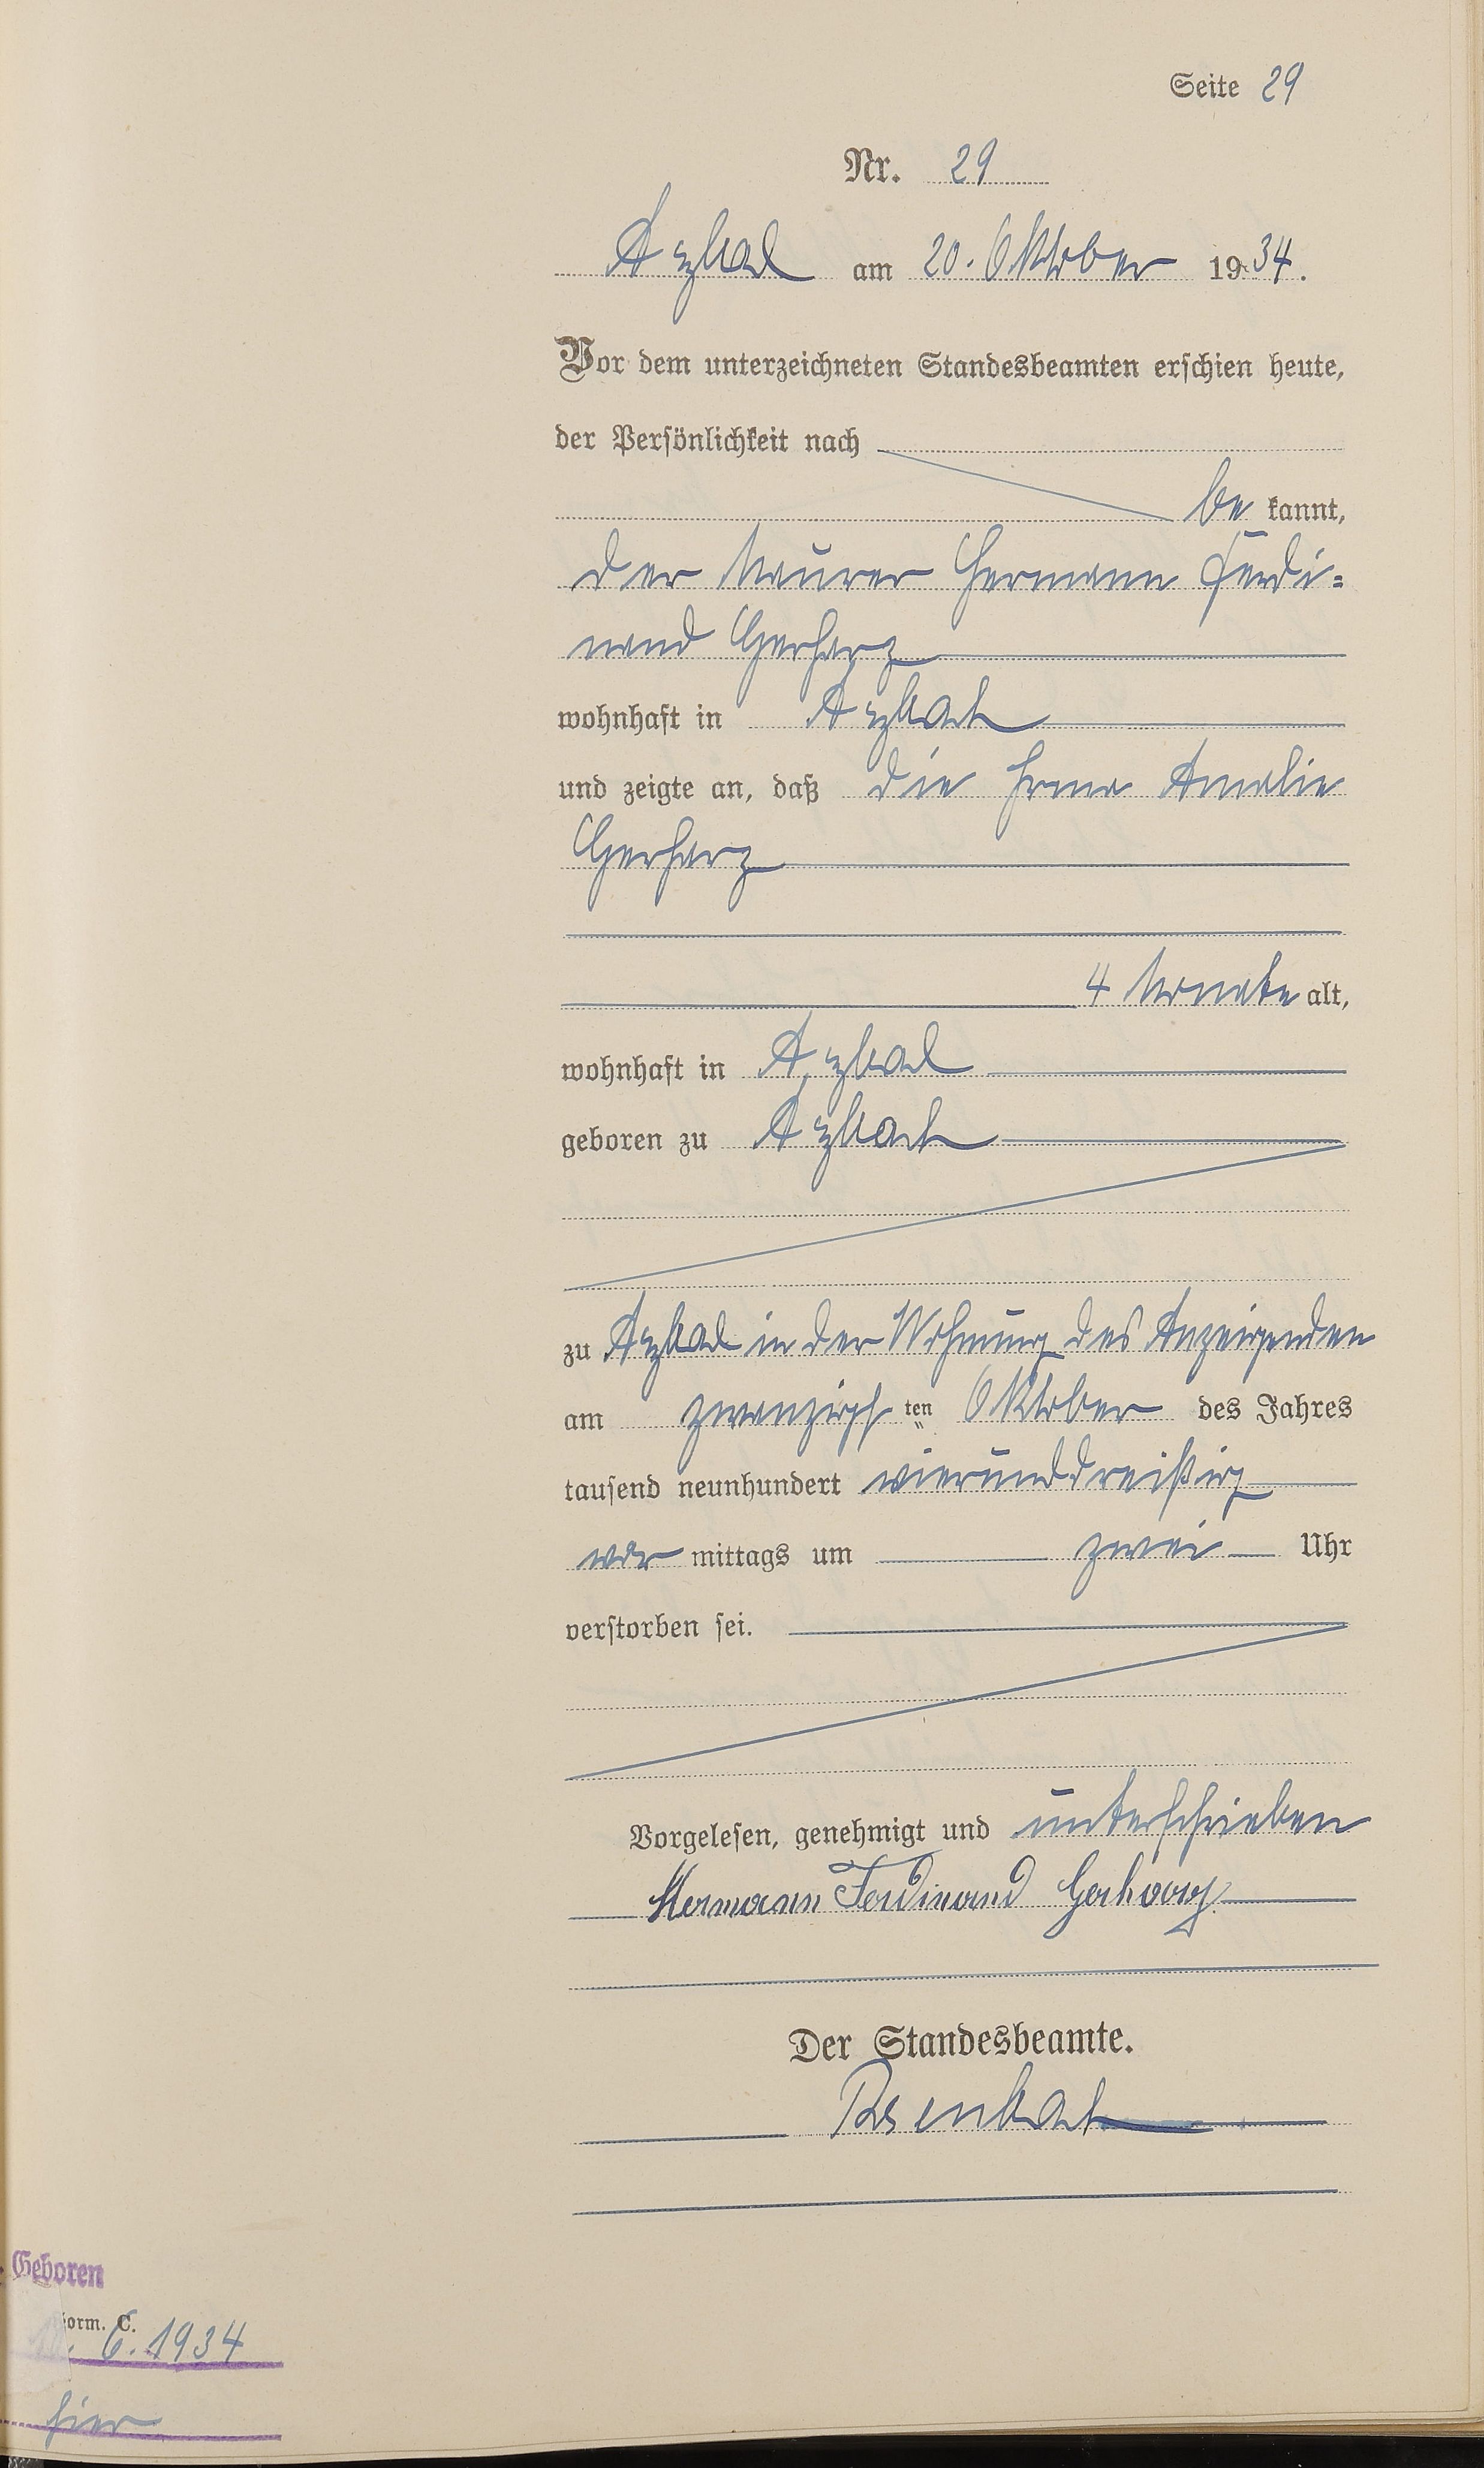 Seite 29
Nr. 29
Arzbach am 20. Oktober 1934.
Vor dem unterzeichneten Standesbeamten erschien heute,
der Persönlichkeit nach
be kannt,
der Maurer Hermann Ferdi=
nand Gerharz
wohnhaft in Arzbach
und zeigte an, daß die Irma Amalie
Gerharz
4 Monate alt,
wohnhaft in Arzbach
geboren zu Arzbach
zu Arzbach in der Wohnung des Anzeigenden
am zwanzigsten Oktober des Jahres
tausend neunhundert vierunddreißig
vor mittags um zwei Uhr
verstorben sei.
Vorgelesen, genehmigt und unterschrieben
Hermann Ferdinand Gerharz
Der Standesbeamte.
Geboren
orm. C.
6. 1934
hier